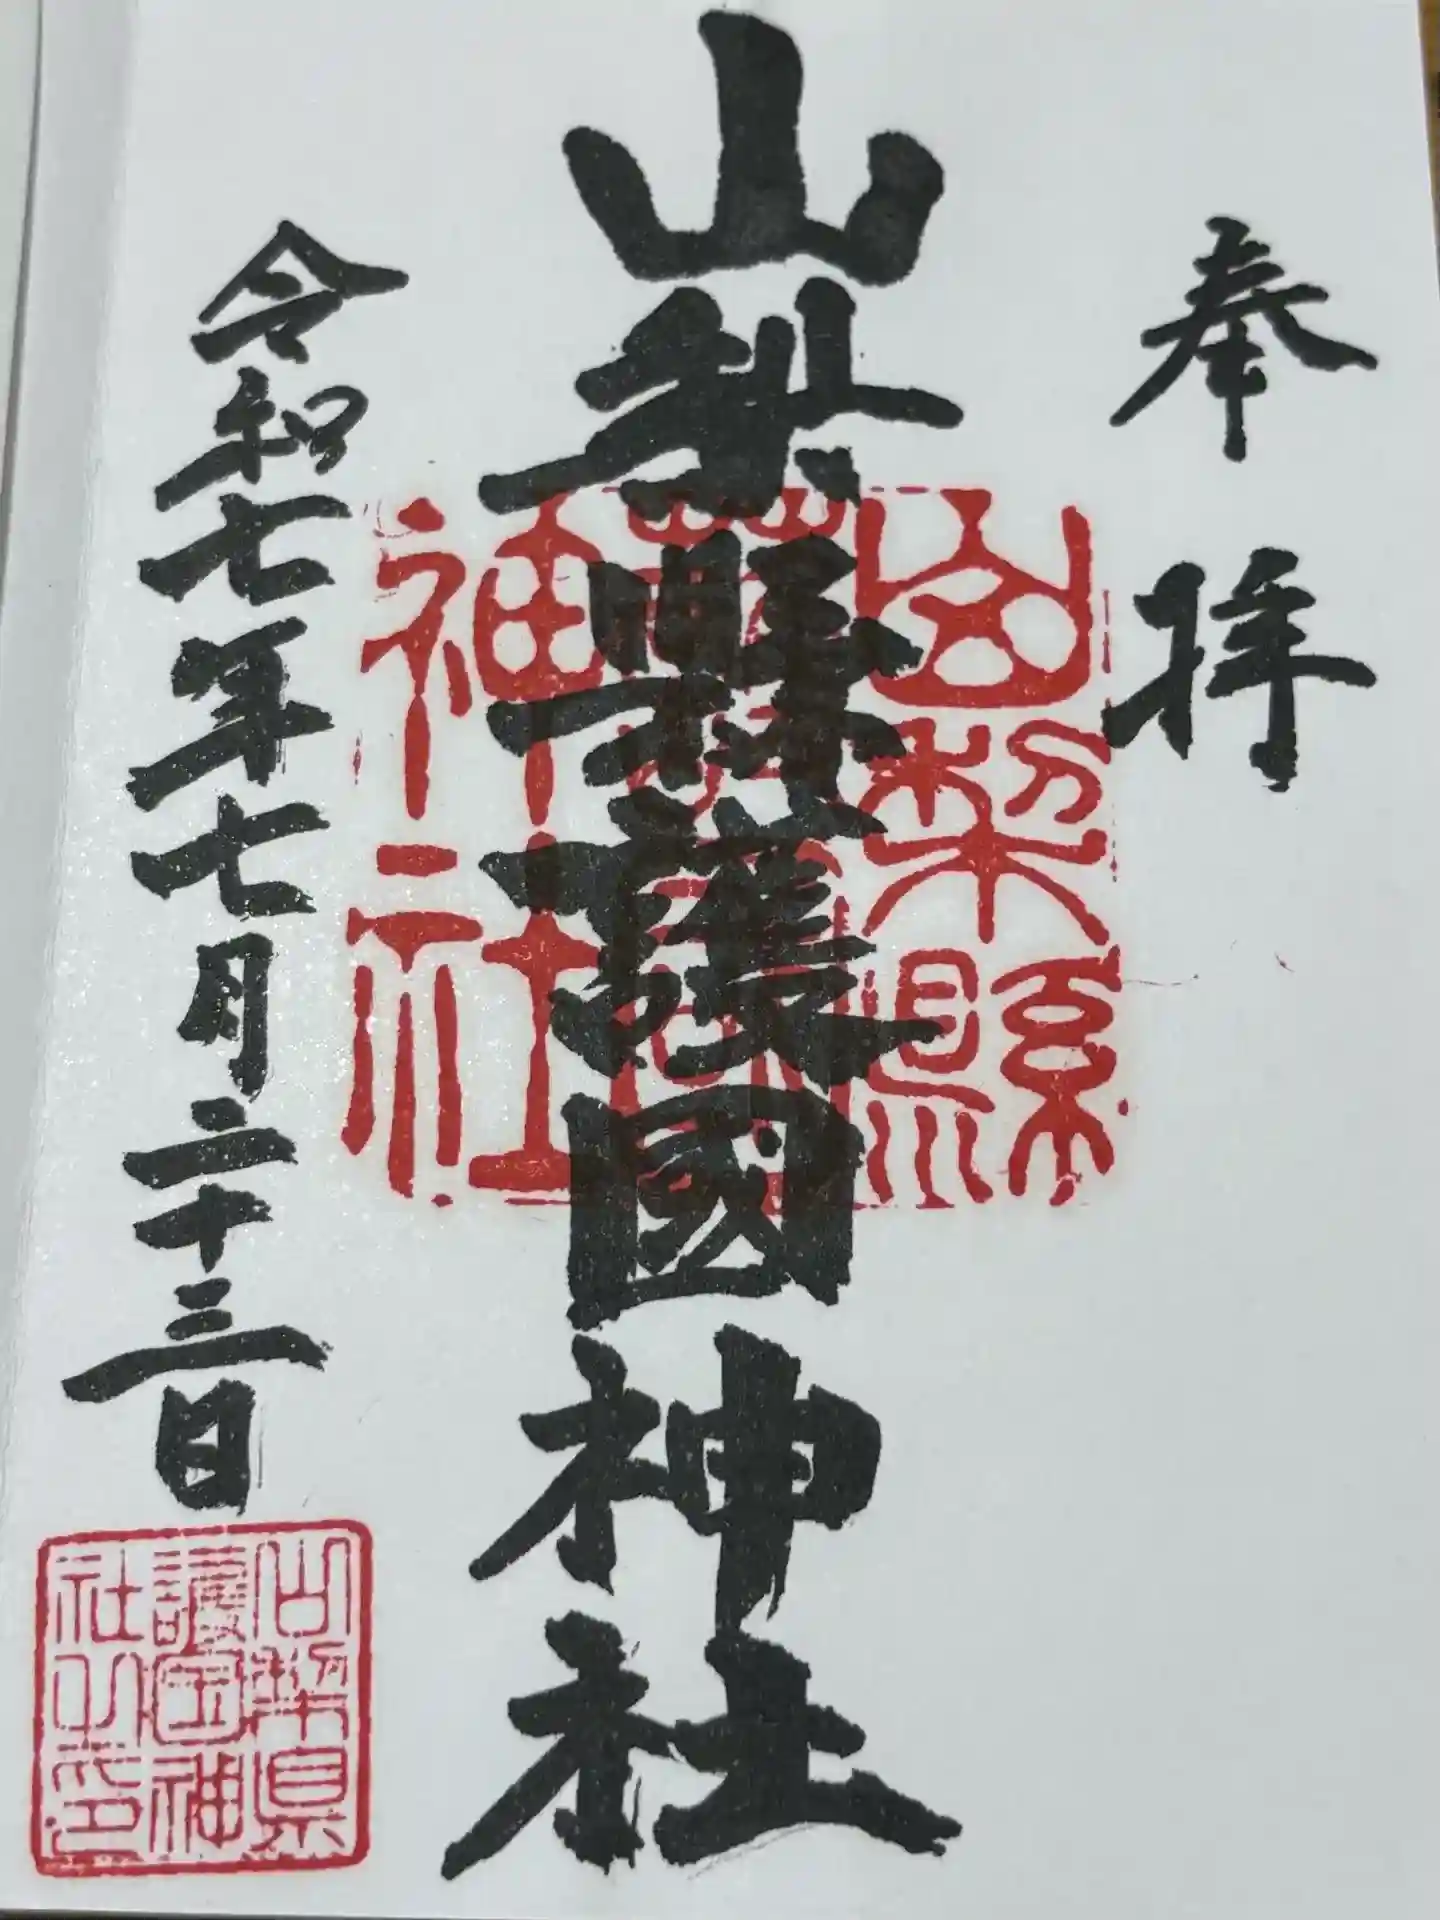 奉拝
山梨縣護國神社
山梨縣
護國
神社
令和七年七月二十三日
山梨県
護国神
社之印